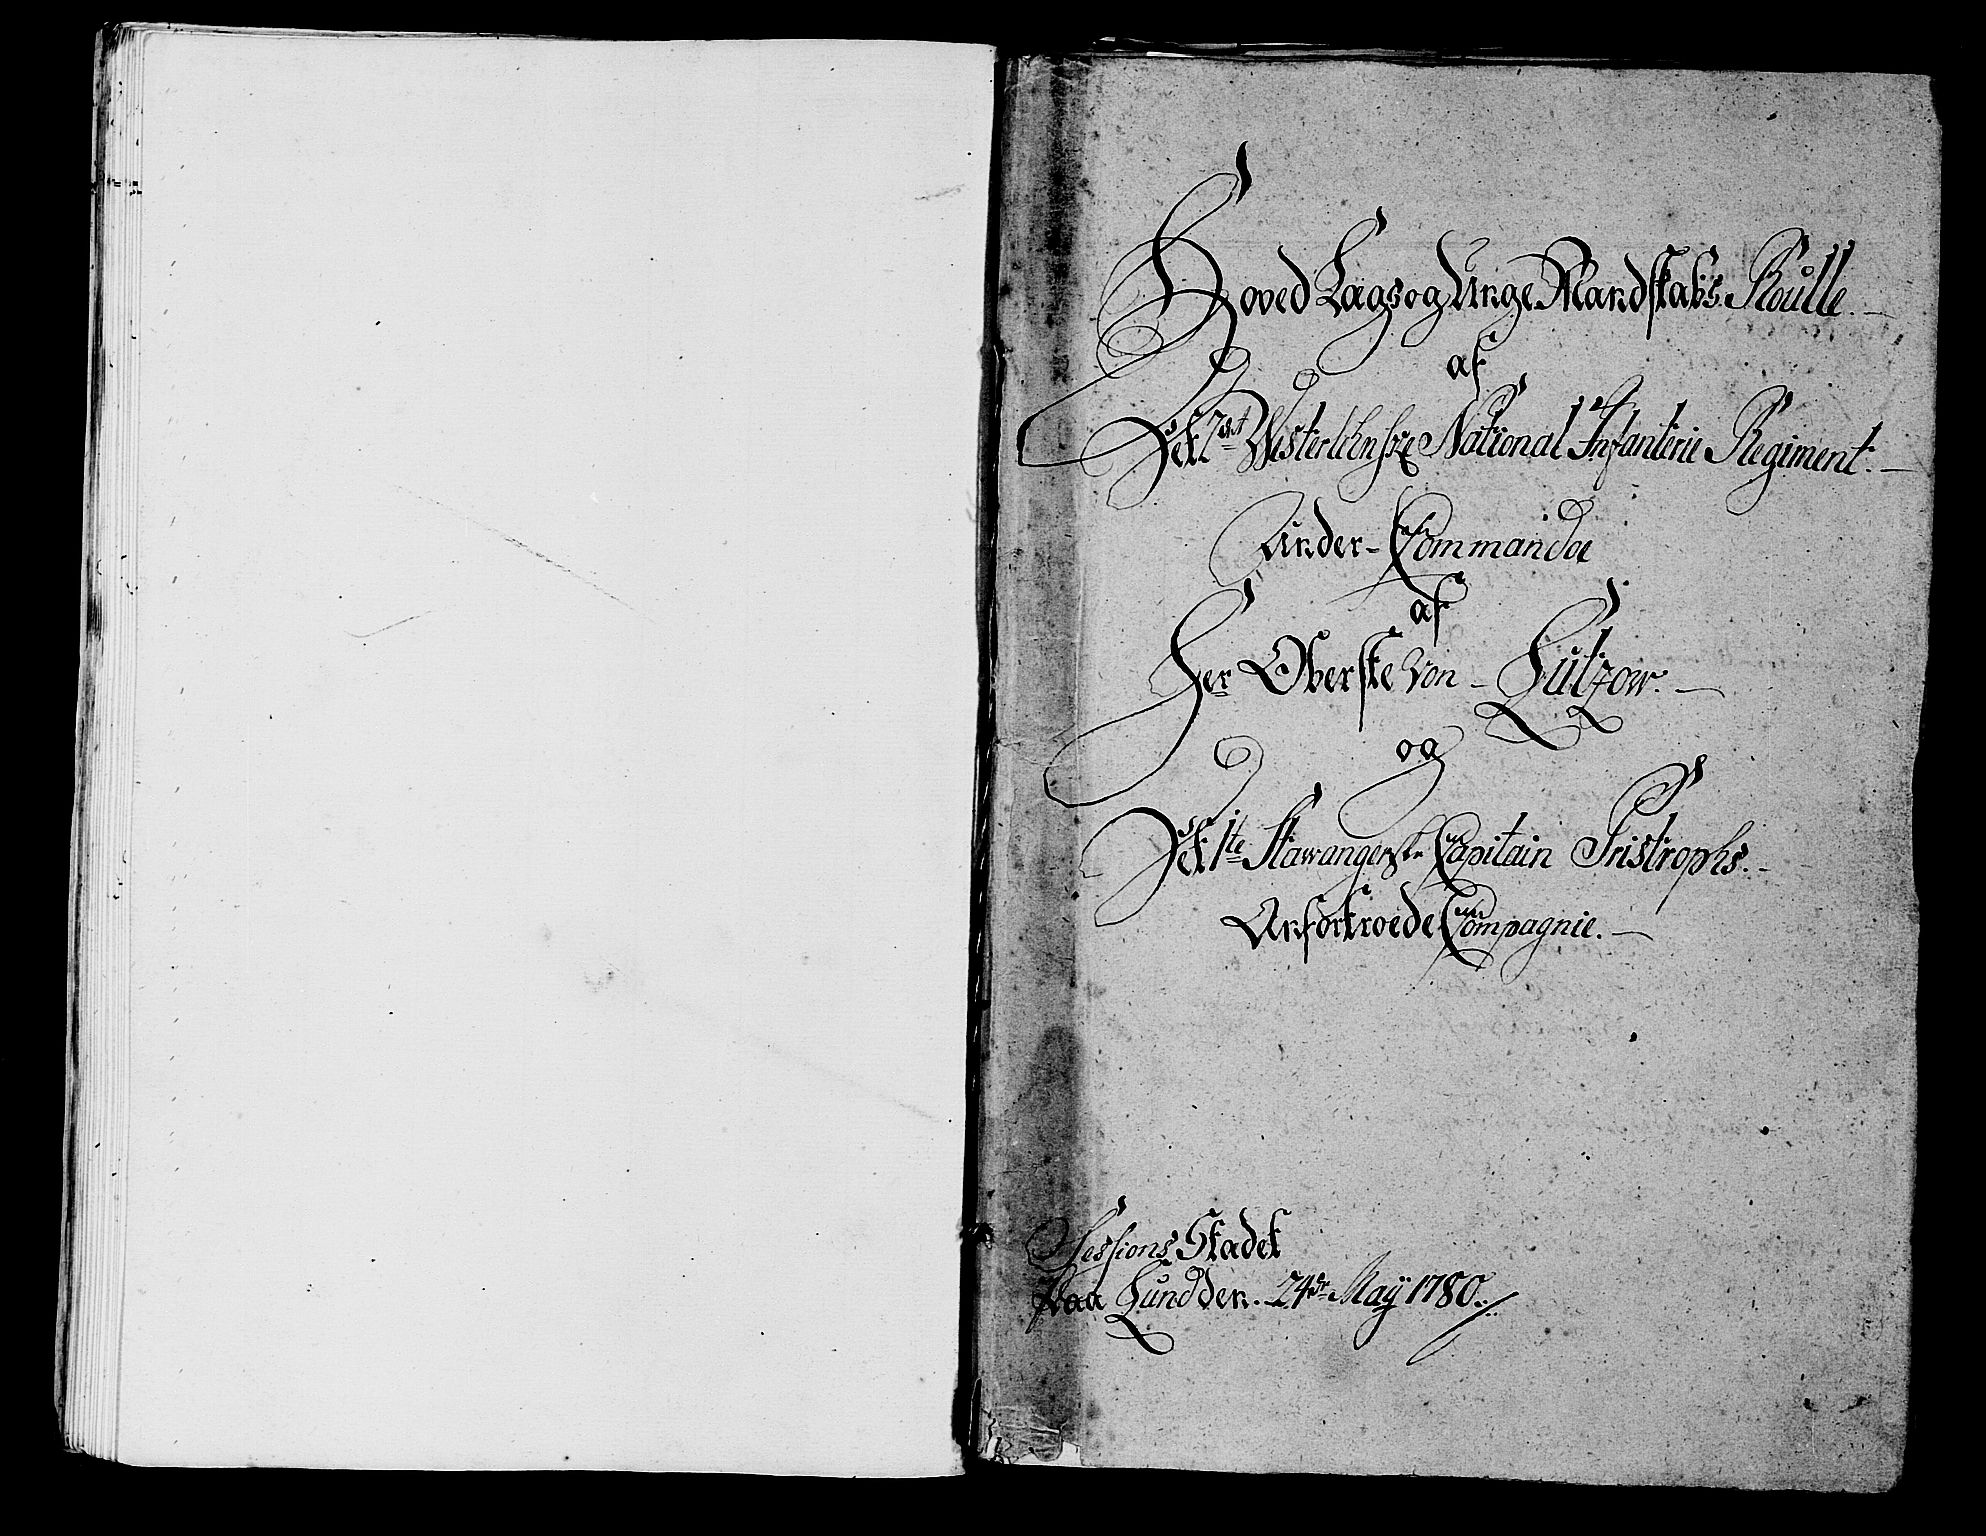 Hoved Lags og Unge Mandskabs Roulle.
af
Det 2det Westerlehnske National Infanterie Regiment.
Under-Commando
af
Her Oberste von Lützow.
og
Det 1te Stawangerske Capitain Tristrophs.
Anfortroede Compagnie.
Sessions Stadet
Paa Lund den. 24de May 1780.